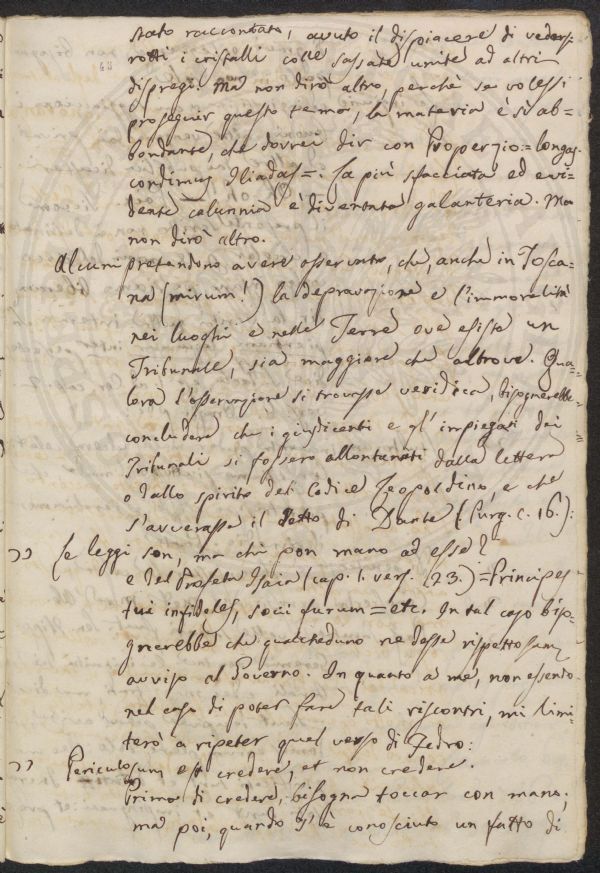 stato raccontato, avuto il dispiacere di vedersi
rotti i cristalli colle sassate unite ad altri
dispregi. Ma non dirò altro, perchè se volessi
proseguir questo tema, la materia è sì ab=
bondante, che dovrei dir con Properzio:= longas
condimus Iliadas=. La più sfacciata ed evi=
dente calunnia è diventata galanteria. Ma
non dirò altro.
Alcuni pretendono avere osservato, che, anche in Tosca=
na (mirum!) la depravazione e l'immoralità
nei luoghi e nelle Terre ove esiste un
Tribunale, sia maggiore che altrove. Qua=
lora l'osservazione si trovasse veridica, bisognerebbe
concludere che i giusdicenti e gl'impiegati dei
Tribunali si fossero allontanati dalla lettera
o dallo spirito del Codice Leopoldino, e che
s'avverasse il detto di Dante (Purg. c. 16.):
Le leggi son, ma chi pon mano ad esse?
e del Profeta Isaia (cap. 1. vers. 23.) = Principes
tui infideles, socii furum = etc. In tal caso biso=
gnerebbe che qualcheduno ne desse rispettosam
avviso al Governo. In quanto a me, non essendo
nel caso di poter fare tali riscontri, mi limi=
terò a ripeter quel verso di Fedro:
Periculosum est credere, et non credere.
Prima di credere, bisogna toccar con mano;
ma poi, quando s'è conosciuto un fatto di